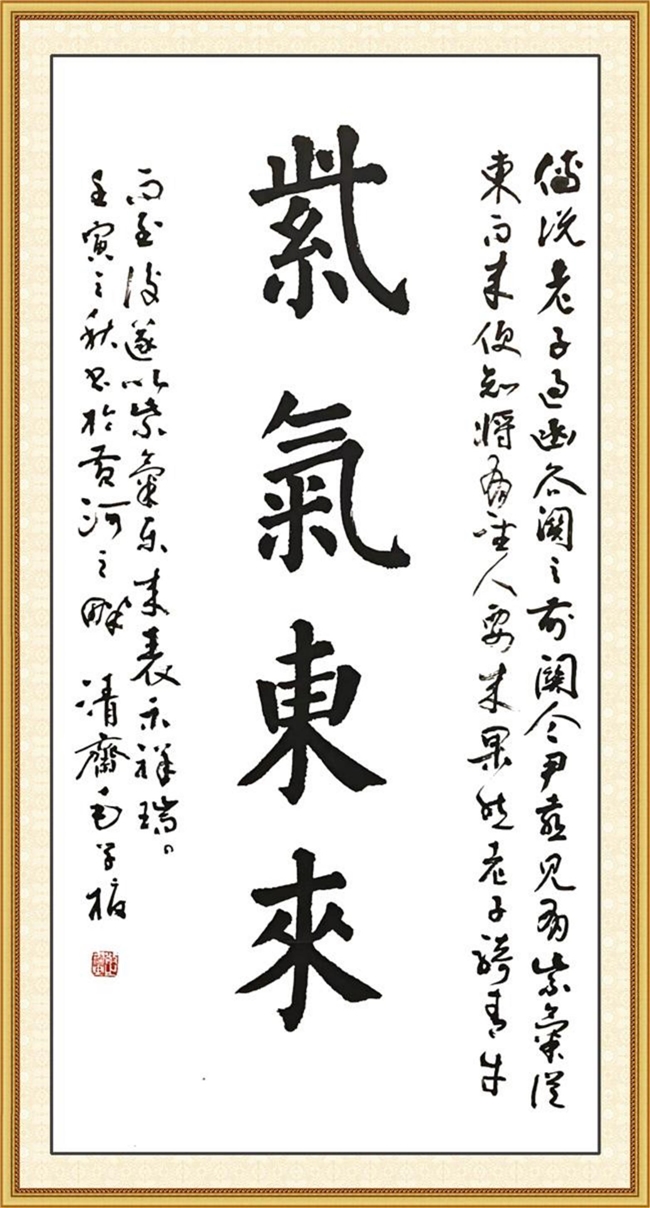 傳说老子過函谷関之前関令尹喜見有紫氣從
東而来便知將有聖人要来果然老子騎青牛
紫氣東來
而至後遂以紫氣东来表示祥瑞。
壬寅之秋书於黄河之畔 清齋毛学